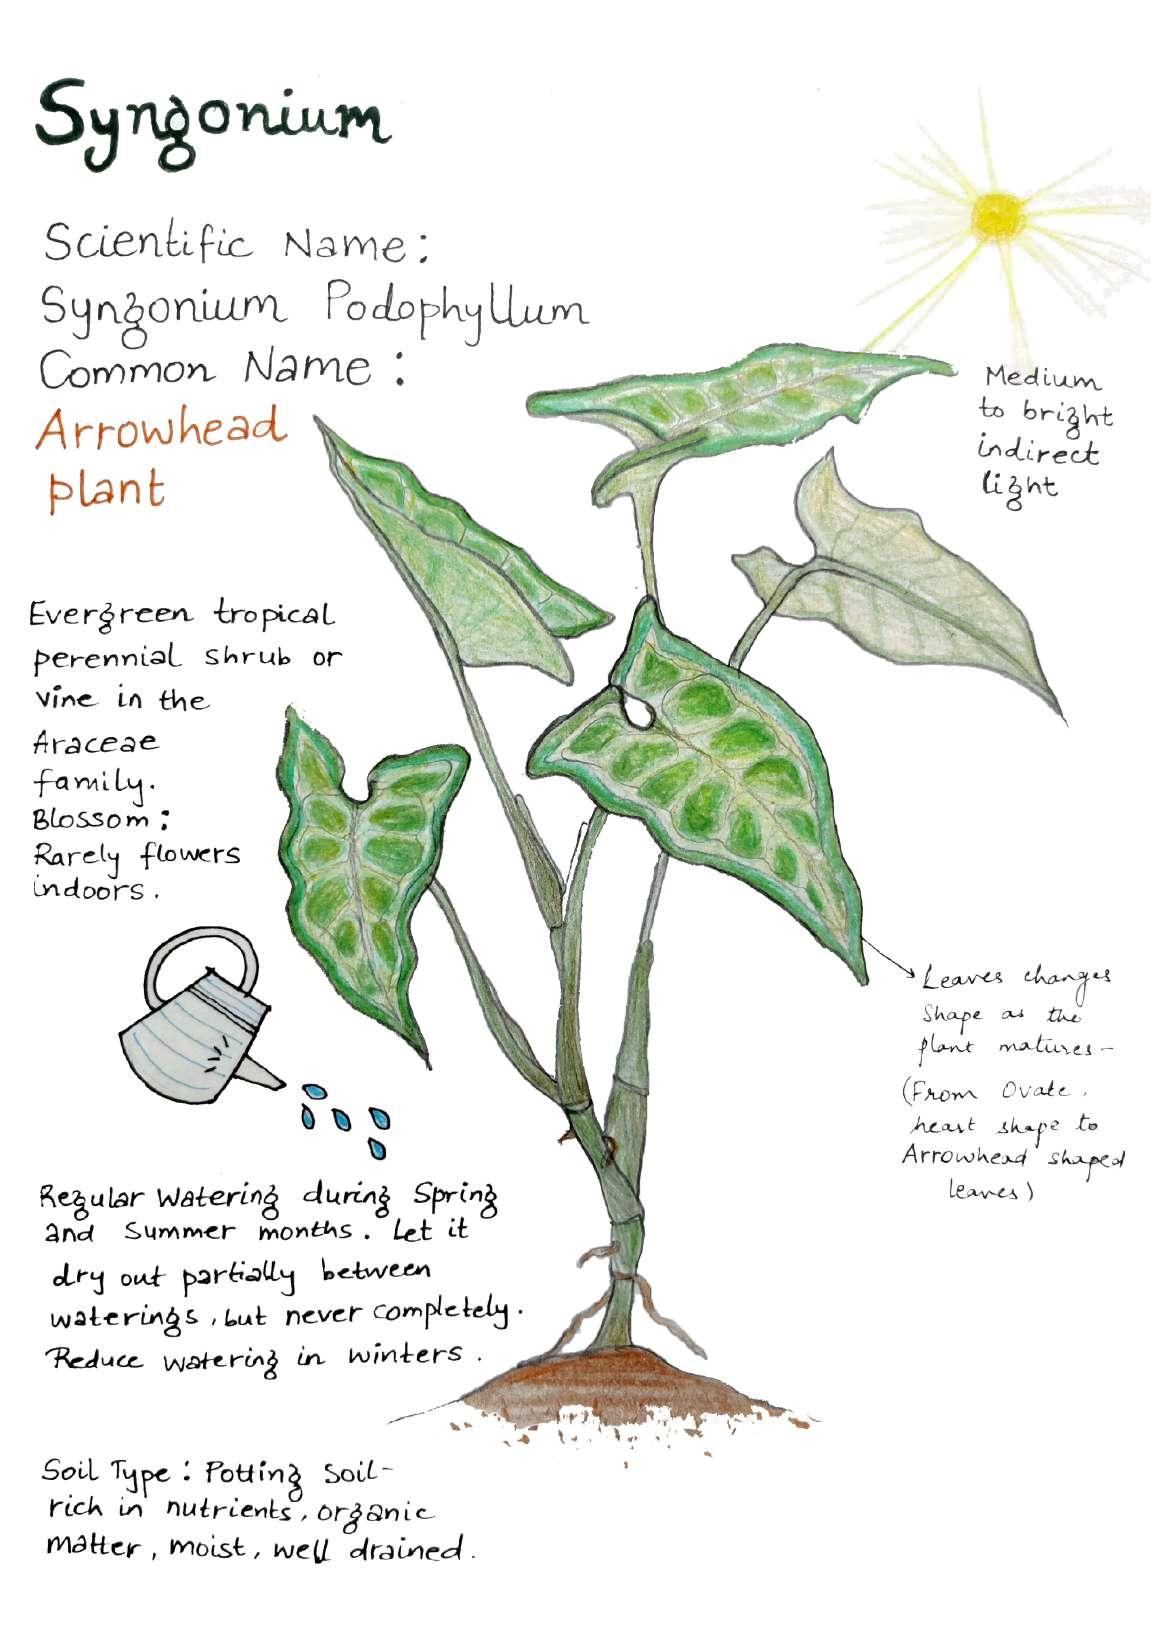 Syngonium
Scientific Name:
Syngonium Podophyllum
Common Name:
Arrowhead
plant
Medium
to bright
indirect
light
Evergreen tropical
perennial shrub or
vine in the
Araceae
family.
Blossom:
Rarely flowers
indoors.
Leaves changes
shape as the
plant matures-
(From Ovate,
heart shape to
Arrowhead shaped
leaves)
Regular Watering during Spring
and Summer months. Let it
dry out partially between
waterings, but never completely.
Reduce watering in winters.
Soil Type: Potting soil-
rich in nutrients, organic
matter, moist, well drained.